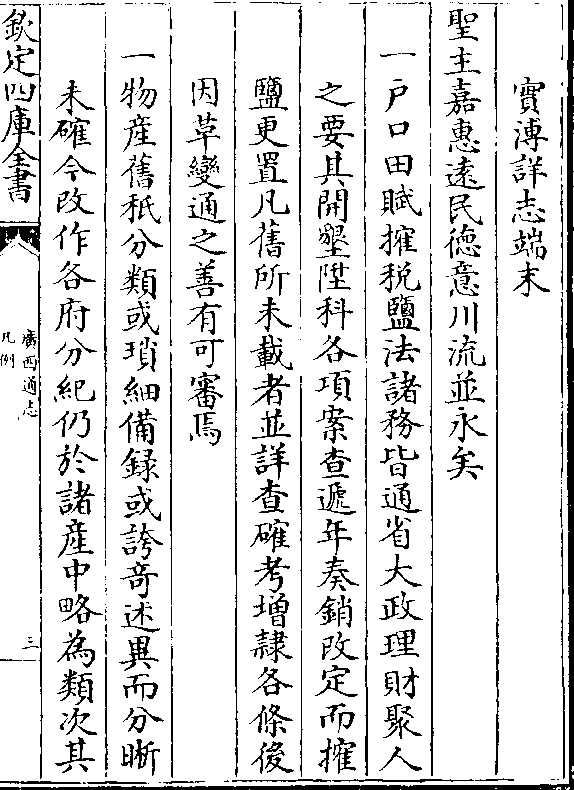 實溥詳志端末
聖主嘉惠遠民德意川流並永矣
一戶口田賦㩁税鹽法諸務皆通省大政理財聚人
之要其開墾陞科各項案查遞年奏銷改定而㩁
鹽更置凡舊所未載者並詳查確考増隷各條後
因革變通之善有可審焉
一物產舊秖分類或瑣細備録或誇竒述異而分晰
未確今改作各府分紀仍於諸産中略為類次其
欽定四庫全書
廣西通志
凡例
三